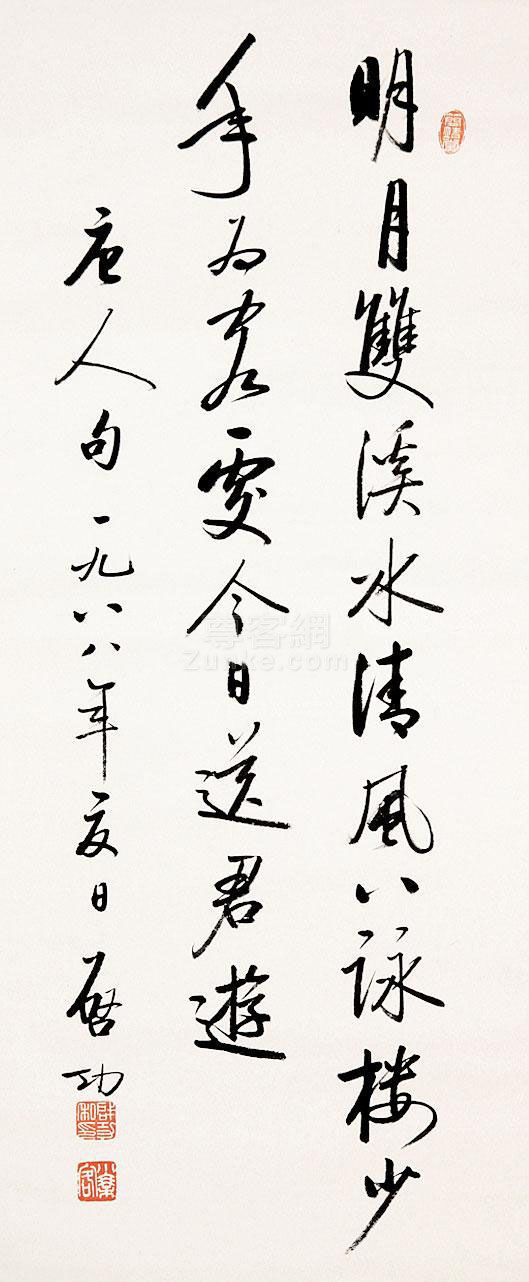 明月雙溪水清風八詠樓少
年為客處今日送君遊
唐人句一九八八年夏日啓功
尊客網
Zunke.com